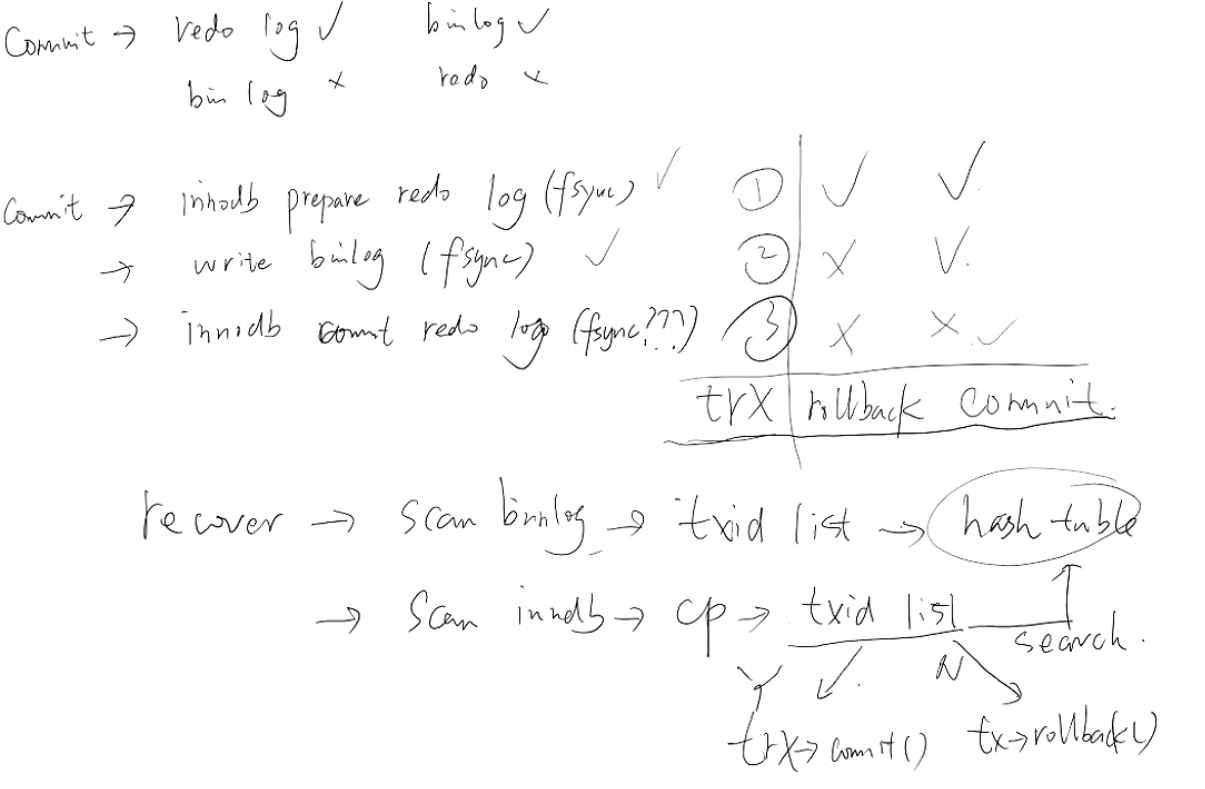 Commit → redo log ✓ binlog ✓
bin log × redo ×
Commit → innodb prepare redo log (fsync) ✓ ① ✓ ✓.
→ write binlog (fsync) ✓ ② × ✓.
→ innodb commit redo log (fsync???) ③ × × ✓
trx rollback commit.
recover → scan binlog → txid list → hash table
→ scan innodb → cp → txid list search.
Y N
trx→commit() tx→rollback()